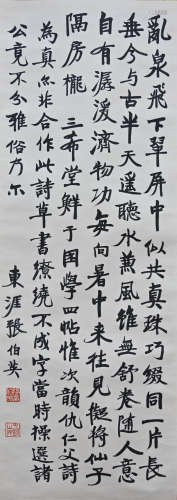 亂泉飛下翠屏中似共真珠巧綴同一片長
垂今与古半天遥聽水兼風雖無舒卷随人意
自有潺湲濟物功每向暑中来往見擬将仙子
隔房櫳 三希堂鮮于困學四帖惟次韻仇仁父詩
為真亦非合作此詩草書繚繞不成字當時操選諸
公竟不分雅俗乃尔
東涯張伯英